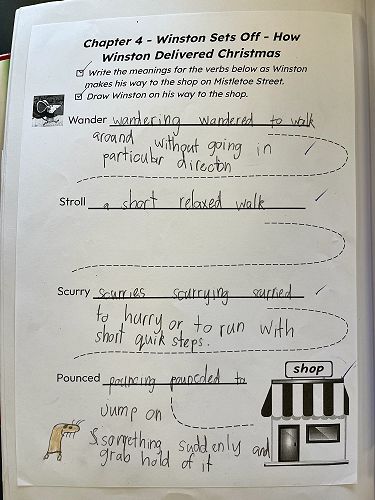 Chapter 4 - Winston Sets Off - How
Winston Delivered Christmas
Write the meanings for the verbs below as Winston
makes his way to the shop on Mistletoe Street.
Draw Winston on his way to the shop.
Wander wandering wandered to walk
around without going in
particular direction
Stroll a short relaxed walk
Scurry scurries scurrying surried
to hurry or to run with
short quik steps.
shop
Pounced pouncing pouncded to
Jump on
somgething suddenly and
grab hold of it